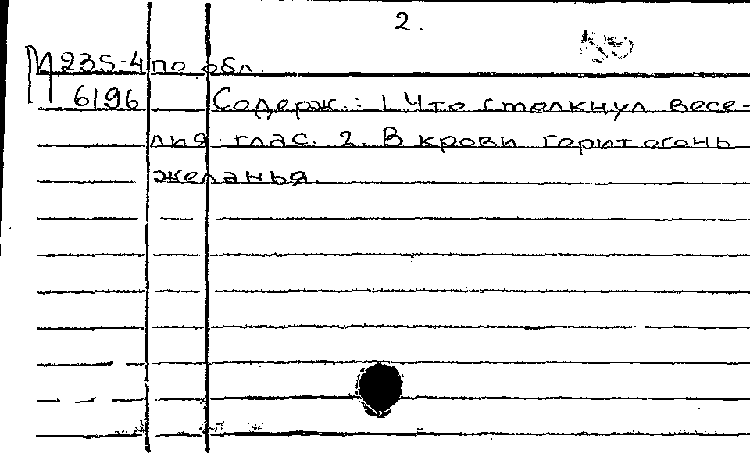 2.
М 235-4 по обл.
6196 Содерж.: 1. Что смолкнул весе-
лия глас. 2. В крови горит огонь
желанья.